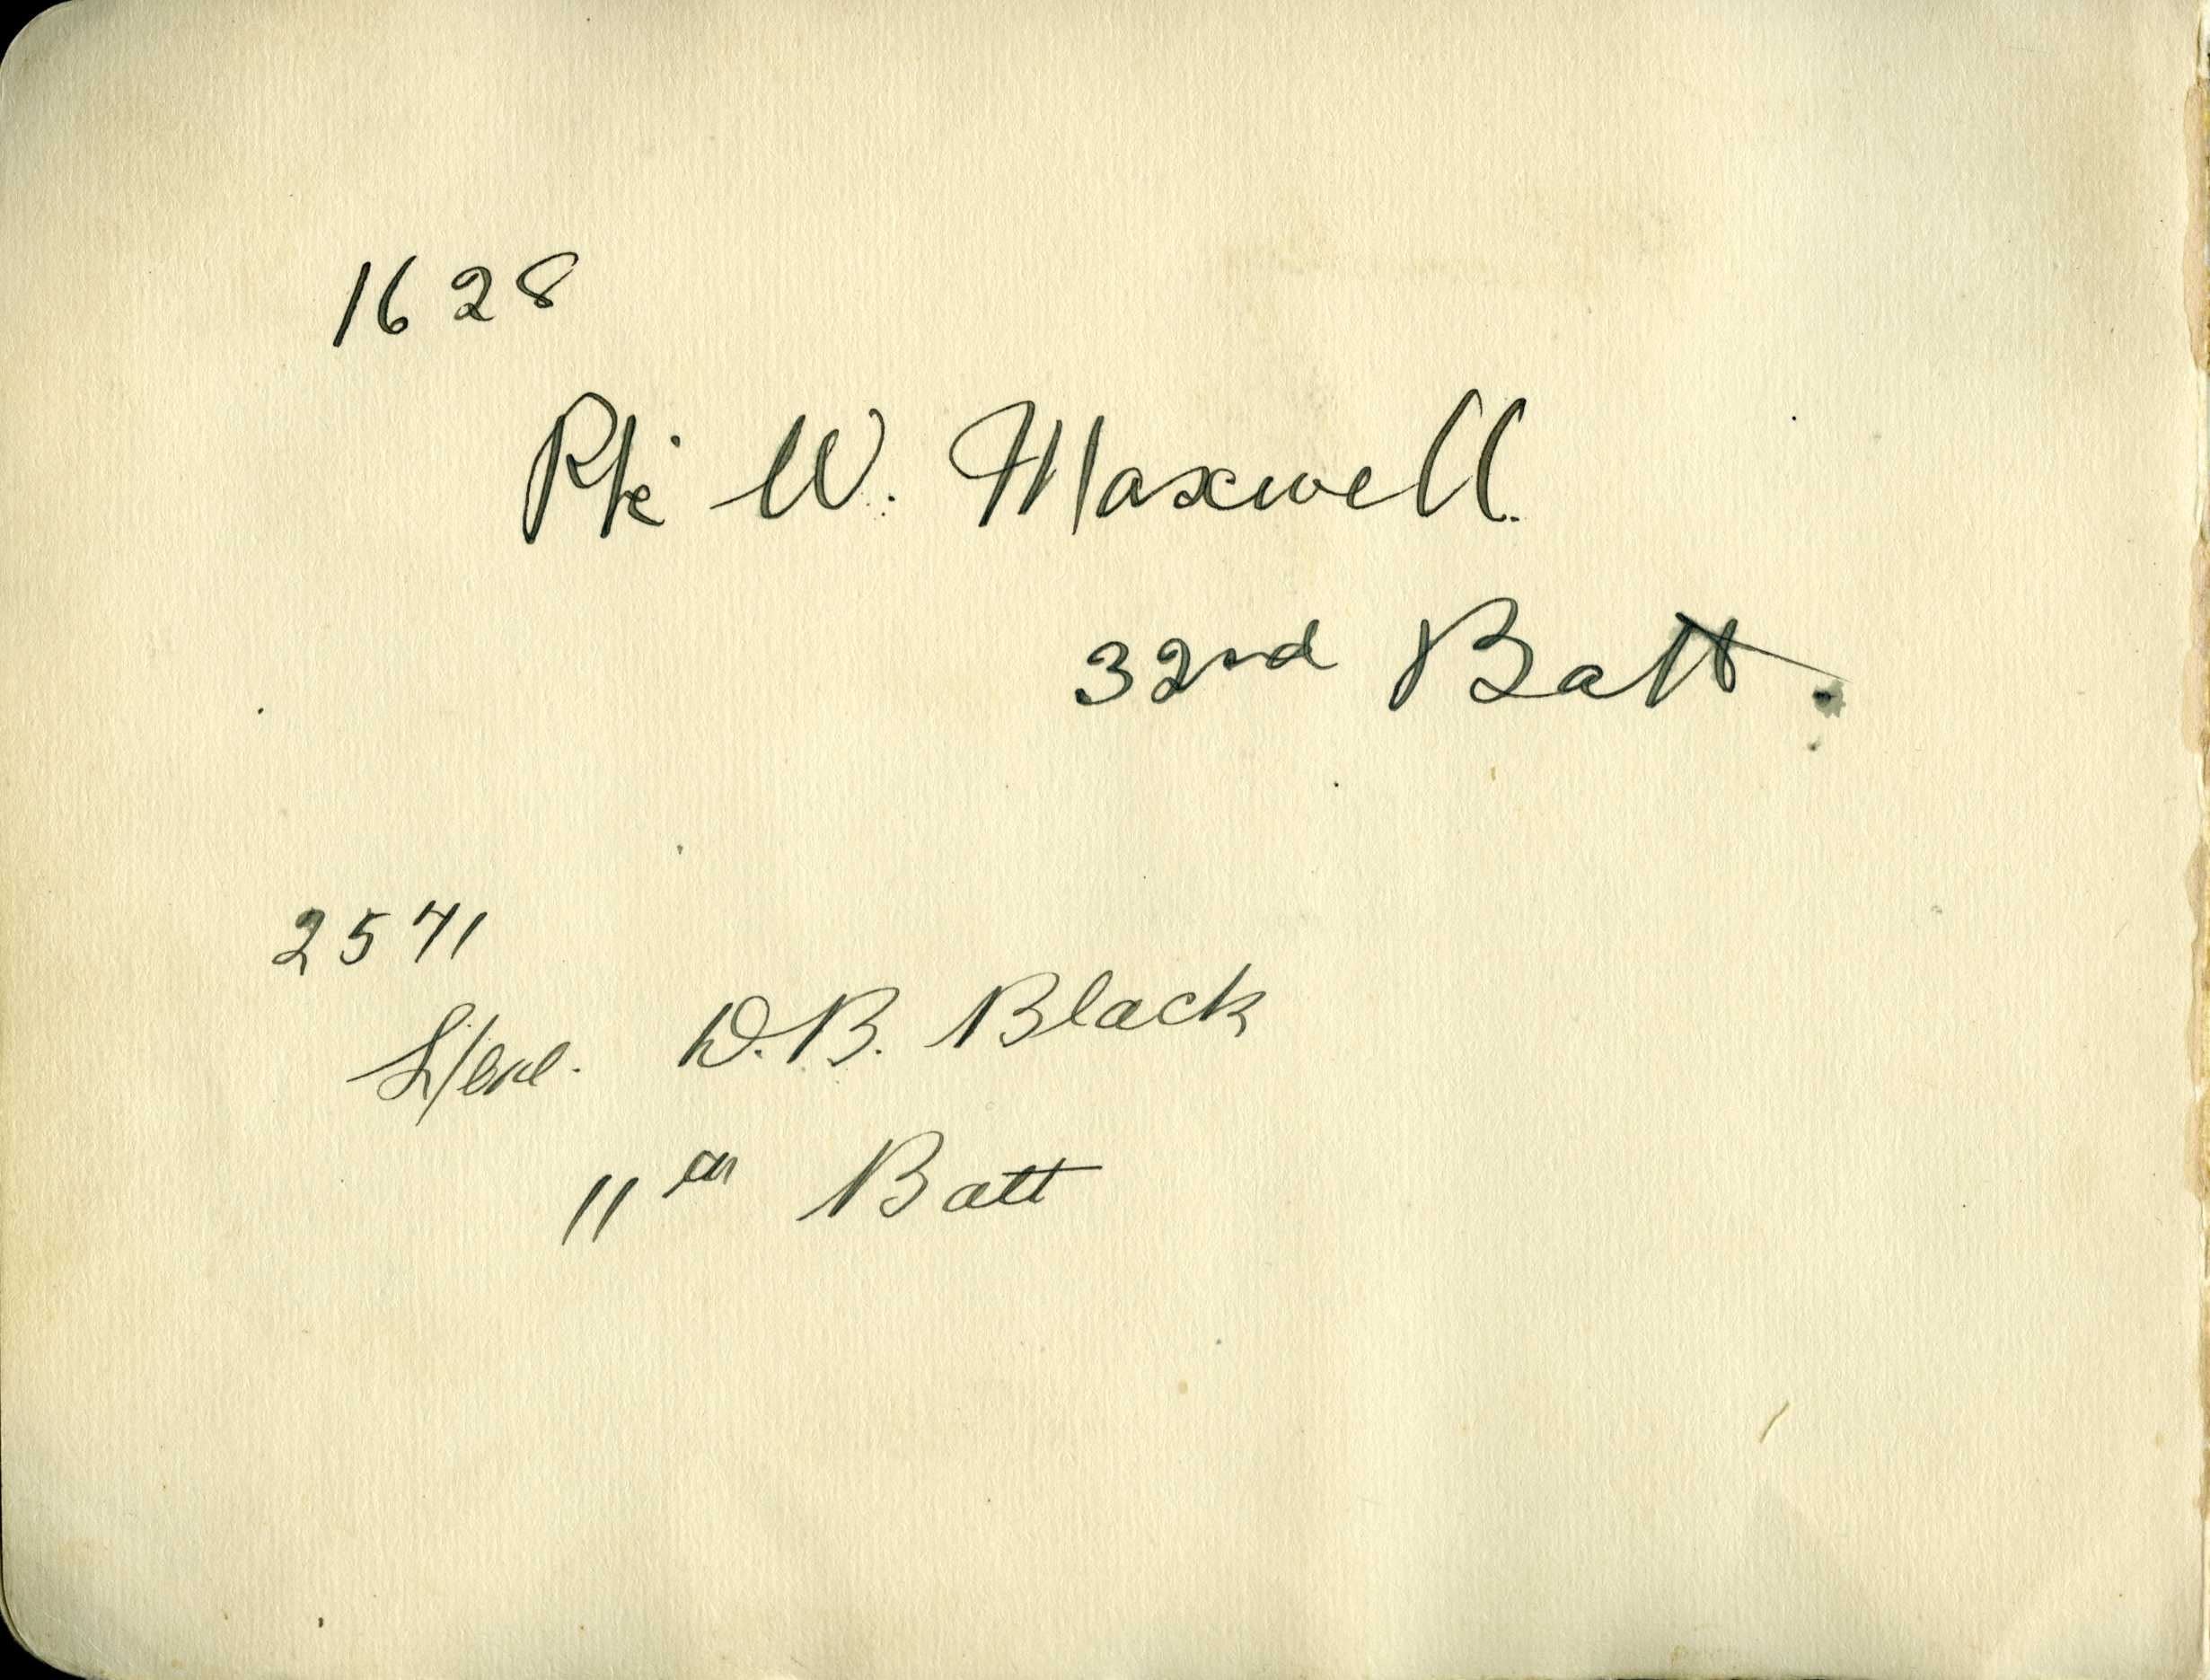 1628
Pte W. Maxwell.
32nd Batt.
2571
D.B. Black
11th Batt